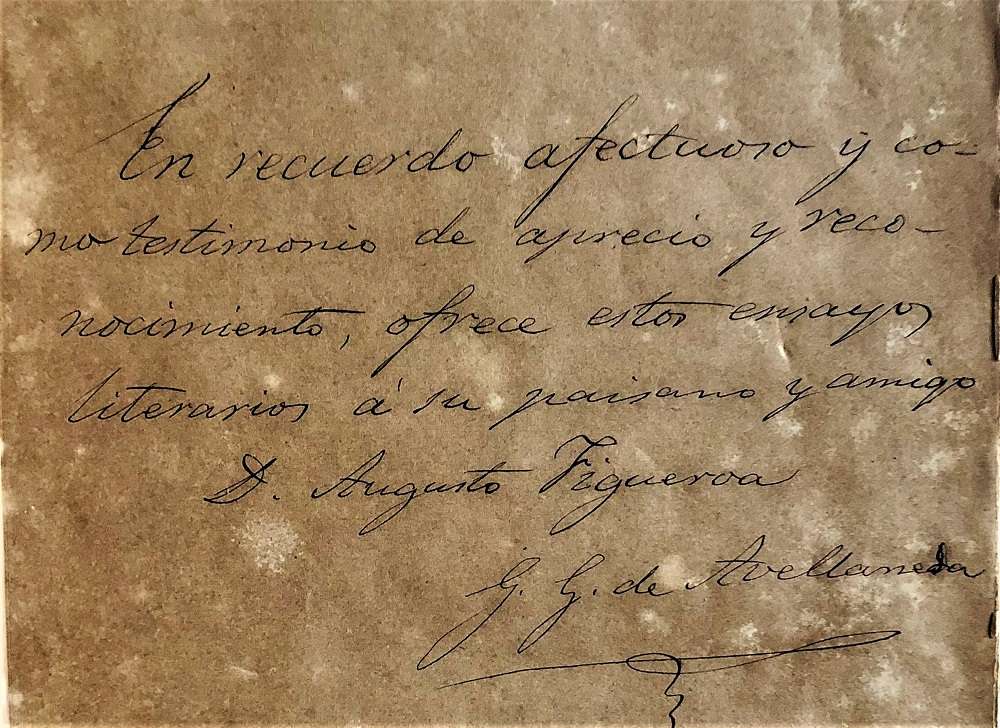 En recuerdo afectuoso y co-
mo testimonio de aprecio y reco-
nocimiento, ofrece estos ensayos
literarios á su paisano y amigo
D. Augusto Figueroa
G. G. de Avellaneda